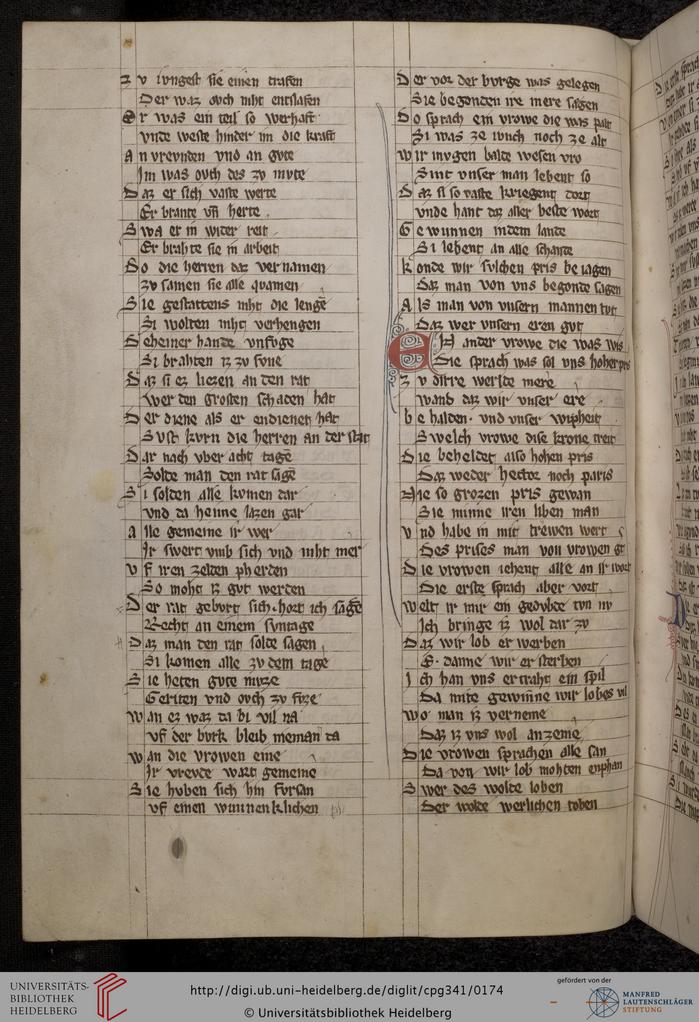 Z v ivngest sie einen trafen
Der waz ovch niht entslafen
Er was ein teil so werhaft
vnde weste hinder im die kraft
An vrevnden vnd an gvte
Im was ovch des zv mvte
Daz er sich vaste werte
Er brante vñ herte
Swa er in wider reit
Er brahte sie in arbeit
Do die herren daz vernamen
zv samen sie alle quamen
Sie gestattens niht die lenge
Si wolten niht verhengen
Deheiner hande vnfvge
Si brahten iz zv
Daz si ez liezen an den rat
wer den grosten schaden hat
Der diene als er endienet hat
Svst kvrn die herren an der stat
Dar nach vber acht tage
Solde man den rat sage
Si solden alle kvmen dar
vnd da heime lazen gar
Alle gemeine ir wer
Ir swert vmb sich vnd niht mer
Vf iren zelden pherden
So moht iz gvt werden
Der rat gebvrt sich hort ich sage
Recht an einem svntage
Daz man den rat solde sagen
Si komen alle zv dem tage
Sie heten gvte mvze
Geriten vnd ovch zv fvze
Wan ez waz da bi vil na
vf der bvrk bleib nieman da
Wan die vrowen eine
Ir vrevde wart gemeine
Sie hvben sich hin fvrsan
vf einen wunnenklichen
Der vor der bvrge was gelegen
Sie begonden ire mere sagen
Do sprach ein vrowe die was palt
Si was ze ivnch noch ze alt
Wir mvgen balde wesen vro
Sint vnser man lebent so
Daz si so vaste kriegent dort
vnde hant daz aller beste wort
Gewunnen in dem lande
Si lebent an alle schande
Konde wir svlchen pris beiagen
Daz man von vns begonde sagen
Als man von vnsern mannen tvt
Daz wer vnsern eren gvt
Ein ander vrowe die was wis
Die sprach was sol vns hoher pris
Zv dirre werlde mere
wand daz wir vnser ere
Behalden vnd vnser wipheit
Swelch vrowe dise krone treit
Die beheldet also hohen pris
Daz weder hector noch paris
Nie so grozen pris gewan
Sie minne iren liben man
Vnd habe in mit trewen wert
Des prises man von vrowen gt
Die vrowen iehent alle an ir wort
Die erste sprach aber vort
Welt ir mir ein gedvlde tvn nv
Ich bringe iz wol dar zv
Daz wir lob erwerben
E danne wir ersterben
Ich han vns ertraht ein spil
Da mite gewinne wir lobes vil
Wo man iz verneme
Daz iz vns wol anzeme
Die vrowen sprachen alle san
Da von wir lob mohten enphan
Swer des wolte loben
Der wolde werlichen toben
UNIVERSITÄTS-
BIBLIOTHEK
HEIDELBERG
http://digi.ub.uni-heidelberg.de/diglit/cpg341/0174
© Universitätsbibliothek Heidelberg
gefördert von der
MANFRED
LAUTENSCHLÄGER
STIFTUNG